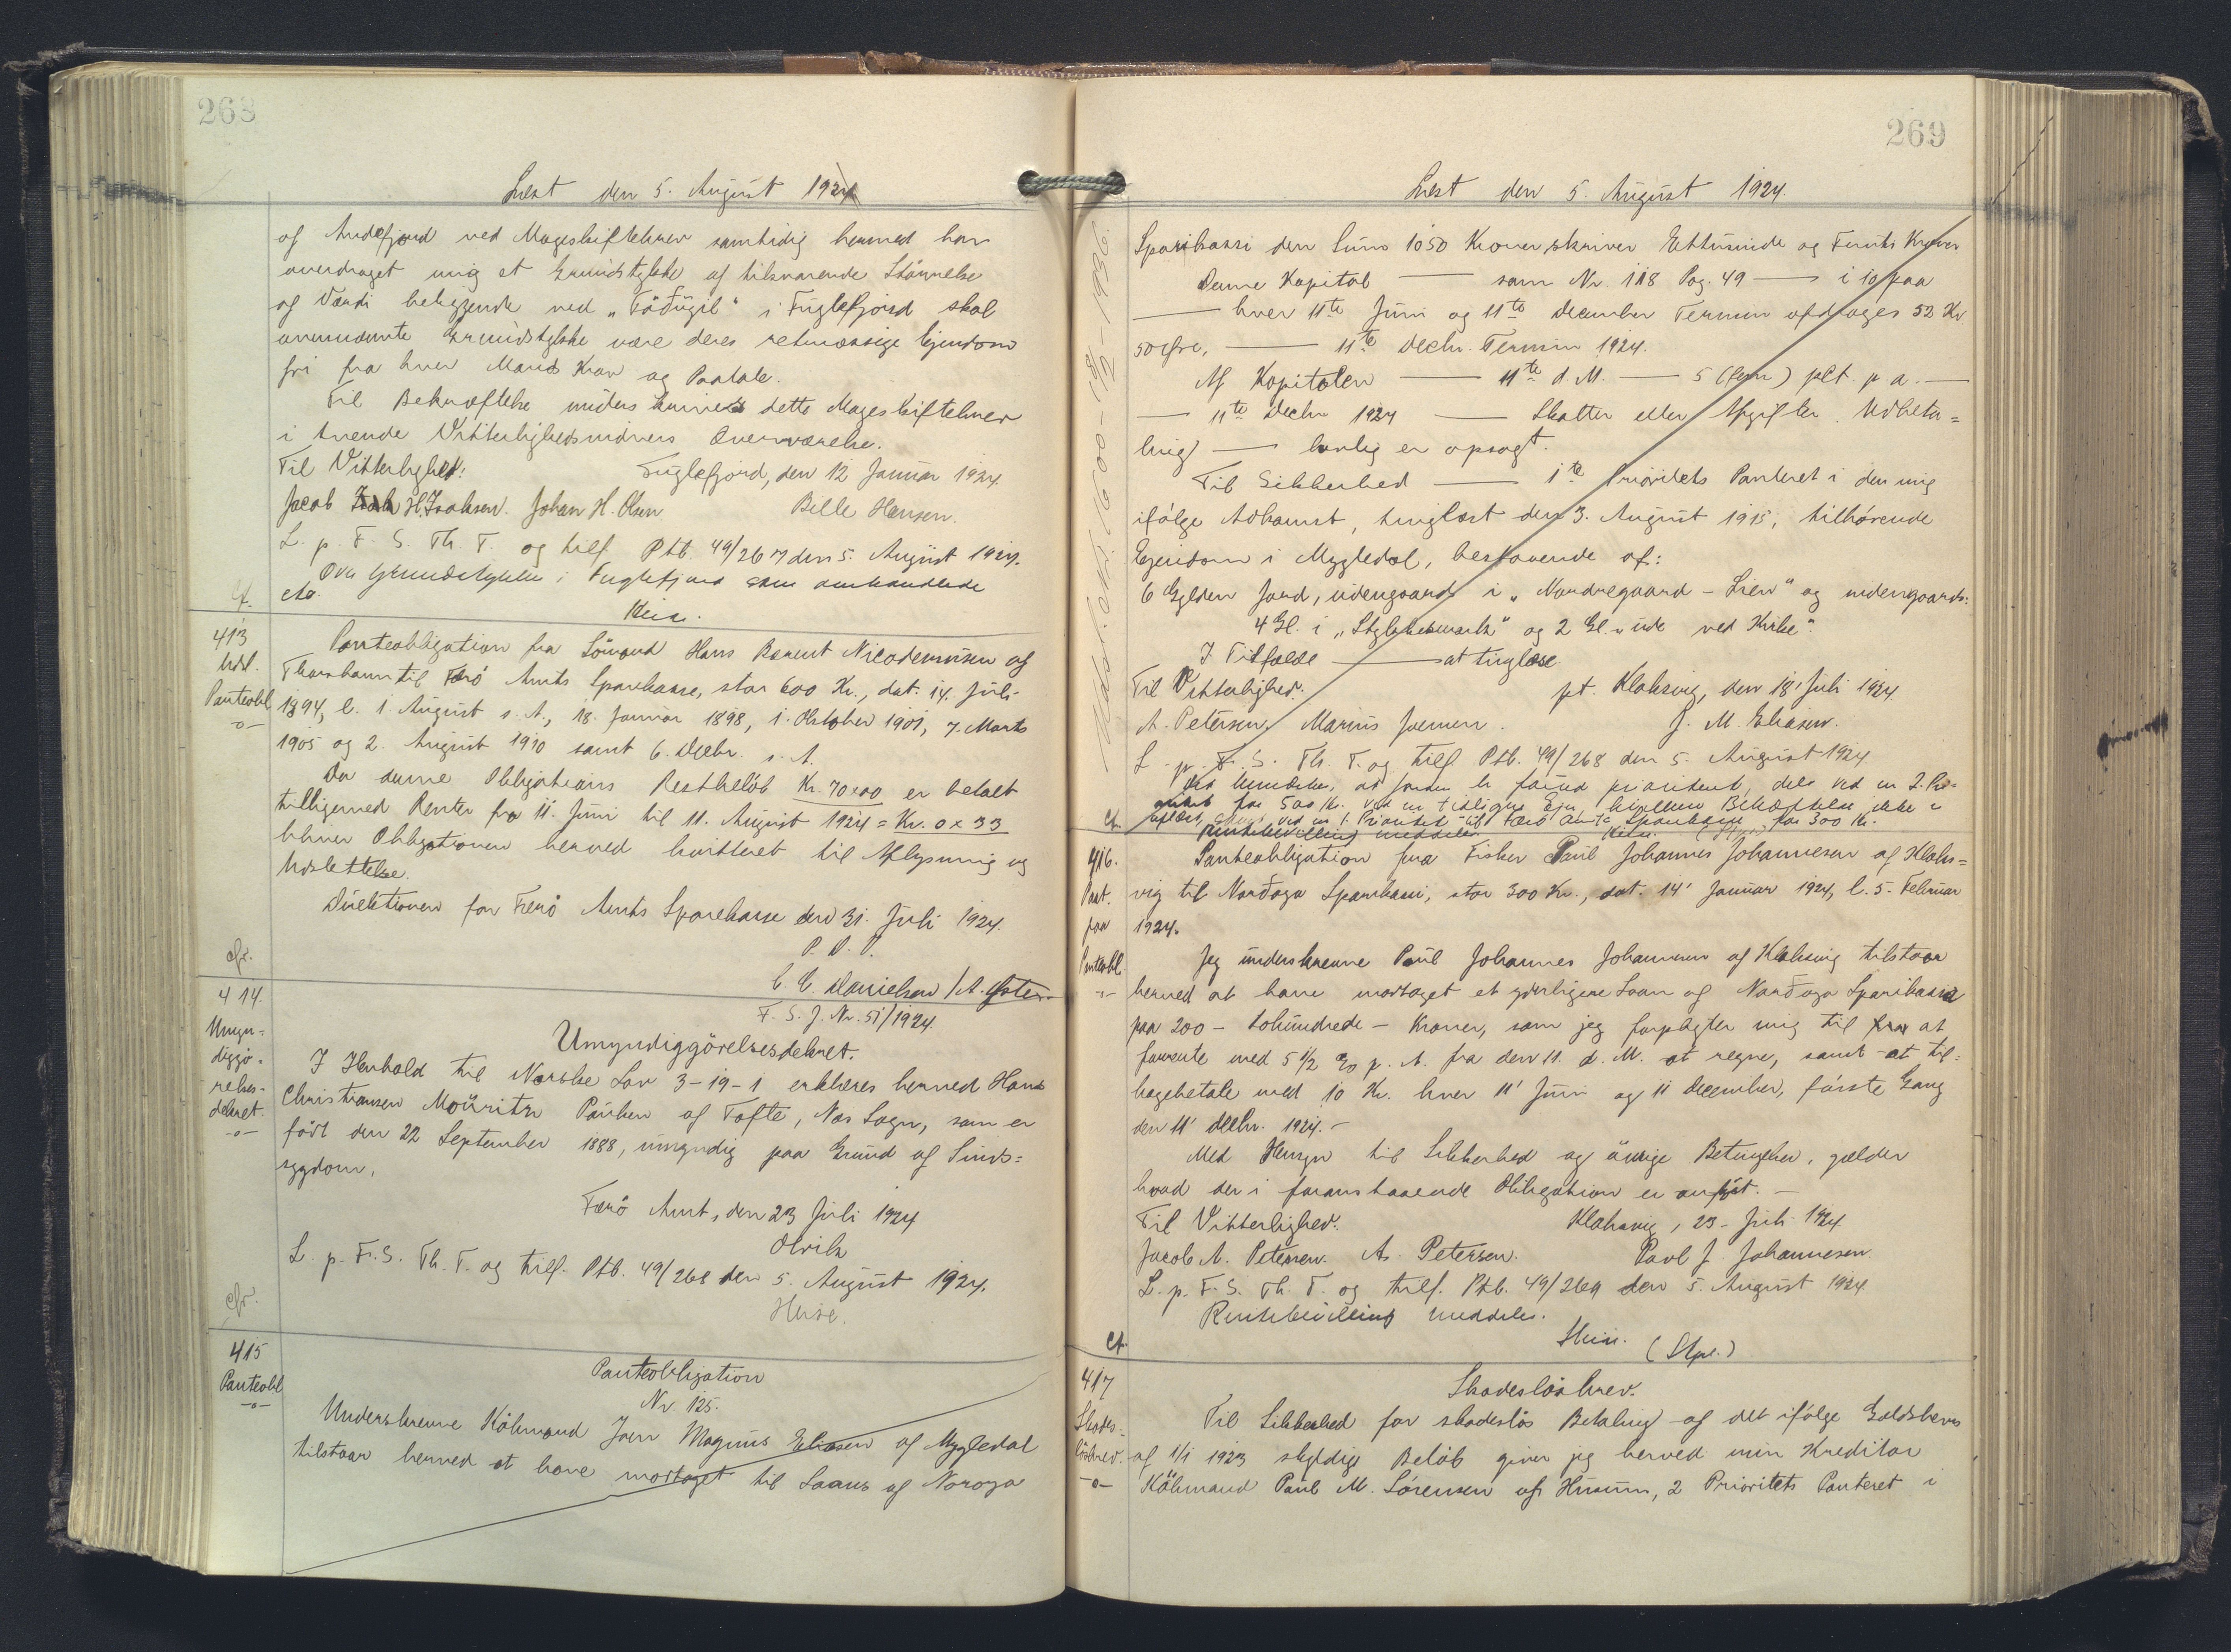 268
Læst den 5. August 1924
af Andefjord ved Mageskifteskrev samtidig hermed har
overdraget mig et Grundstykke af tilsvarende Störrelse
og Værdi beliggende ved „Töðugil" i Fuglefjord skal
ovennævnte Grundstykke være deres retmæssige Ejendom
fri fra hver Mands Krav og Paatale.
Til Bekræftelse underskrives dette Mageskiftebrev
i tvende Vitterlighedsvidners Overværelse.
Til Vitterlighed: Fuglefjord, den 12 Januar 1924.
Jacob H. Isaksen. Johan H. Olsen Bille Hansen.
L. p. F. S. Th. T. og tilf. Ptb. 49/267 den 5. August 1924.
Grundstykket i Fuglefjord som omhandlede
cfr.
413
Udsl.
Panteobl
-o-
Panteobligation fra Sömand Hans Barent Nicodemussen af
Thorshavn til Færö Amts Sparekasse, stor 600 Kr., dat. 14. Juli
1894, l. 1. August s. A., 18. Januar 1898, 1. Oktober 1901, 7. Marts
1905 og 2. August 1910 samt 6. Decbr. s. A.
Da denne Obligations Restbelöb Kr. 70x00 er betalt
tilligemed Renter fra 11. Juni til 11. August 1924 = Kr. 0 x 33
bliver Obligationen herved kvitteret til Aflysning og
Udslettelse.
Direktionen for Færö Amts Sparekasse den 31. Juli 1924.
P. D. V.
C. C. Danielsen /A.
cfr.
414.
Umyn-
diggö-
relses-
dekret.
-o-
F. S. J. Nr. 51/1924.
Umyndiggörelsesdekret.
I Henhold til Norske Lov 3-19-1 erklæres herved Hans
Christiansen Möuritz Poulsen af Tofte, Næs Sogn, som er
födt den 22 September 1888, umyndig paa Grund af Sinds=
sygdom.
Færö Amt, den 23 Juli 1924
Olrik
L. p. F. S. Th. T. og tilf. Ptb. 49/268 den 5. August 1924.
cfr.
415
Panteobl
-o-
Panteobligation
Nr. 125.
Underskrevne Köbmand Joen Magnus Eliasen af Mygledal
tilstaar herved at have modtaget til Laans af Norðoya
269
Læst den 5. August 1924.
Sparikassi den Sum 1050 Kroner, skriver Ettusinde og Femti Kroner
Denne Kapital — som Nr. 118 Pag. 49 — i 10 paa
— hver 11te Juni og 11te December Termin afdrages 52 Kr
50 Öre, — 11te Decbr. Termin 1924.
Af Kapitalen — 11te d. M. — 5 (fem) pCt p a. —
— 11te Decbr 1924 — Skatter eller Afgifter. Udbeta=
ling — lovlig er opsagt.
Til Sikkerhed — 1te Prioritets Panteret i den mig
ifölge Adkomst, tinglæst den 3. August 1915, tilhörende
Ejendom i Mygledal, bestaaende af:
6 Gylden Jord, indengaards i „Nordregaard - Lien" og udengaards:
4 Gl. i og 2 Gl.
I Tilfælde — at tinglæse
Til Vitterlighed. pt. Klaksvig, den 18' Juli 1924
A. Petersen. Marius Joensen. J. M. Eliasen.
L. p. F. S. Th. T. og tilf. Ptb. 49/268 den 5. August 1924.
for 500 Kr. ved en tidligere Ejer,
ved en 1. Prioritet til Færö Amts Sparekasse for 300 Kr.
Rentebevilling meddeles
cf.
416.
Paat.
paa
Panteobl.
-o-
Panteobligation fra Fisker Poul Johannes Johannesen af Klaks=
vig til Norðoya Sparikassi, stor 300 Kr., dat. 14' Januar 1924, l. 5. Februar
1924.
Jeg underskrevne Poul Johannes Johannesen af Klaksvig tilstaar
herved at have modtaget et yderligere Laan af Norðoya Sparikassi
paa 200 - tohundrede - Kroner, som jeg forpligter mig til at
forrente med 5 1/2 % p. A. fra den 11. d. M. at regne, samt at til=
bagebetale med 10 Kr. hver 11' Juni og 11 December, förste Gang
den 11' Decbr. 1924.-
Med Hensyn til Sikkerhed og övrige Betingelser, gælder
hvad der i foranstaaende Obligation er anfört. —
Til Vitterlighed. Klaksvig, 23- Juli 1924
Jacob A. Petersen. A. Petersen. Poul J. Johannesen
L. p. F. S. Th. T. og tilf. Ptb. 49/269 den 5. August 1924
Rentebevilling meddeles.
cf.
417
Skades-
lösbrev.
-o-
Skadeslösbrev.
Til Sikkerhed for skadeslös Betaling af det ifölge Gældsbevis
af 1/1 1923 skyldige Belöb giver jeg herved min Kreditor
Köbmand Poul M. Sörensen af Husum, 2 Prioritets Panteret i